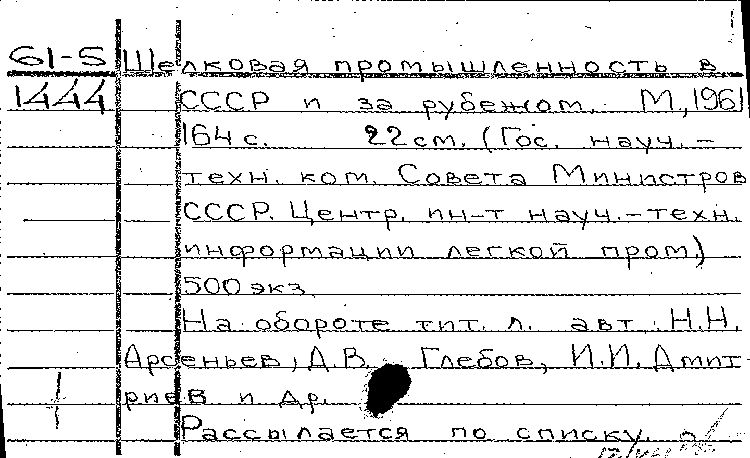 61-5 Шелковая промышленность в
1444 СССР и за рубежом. М., 1961
164 с. 22 см. (Гос. науч.-
техн. ком. Совета Министров
СССР. Центр. ин-т науч.-техн.
информации легкой пром.)
500 экз.
На обороте тит. л. авт.: Н.Н.
Арсеньев, Д.В. Глебов, И.И. Дмит-
риев и др.
Рассылается по списку.